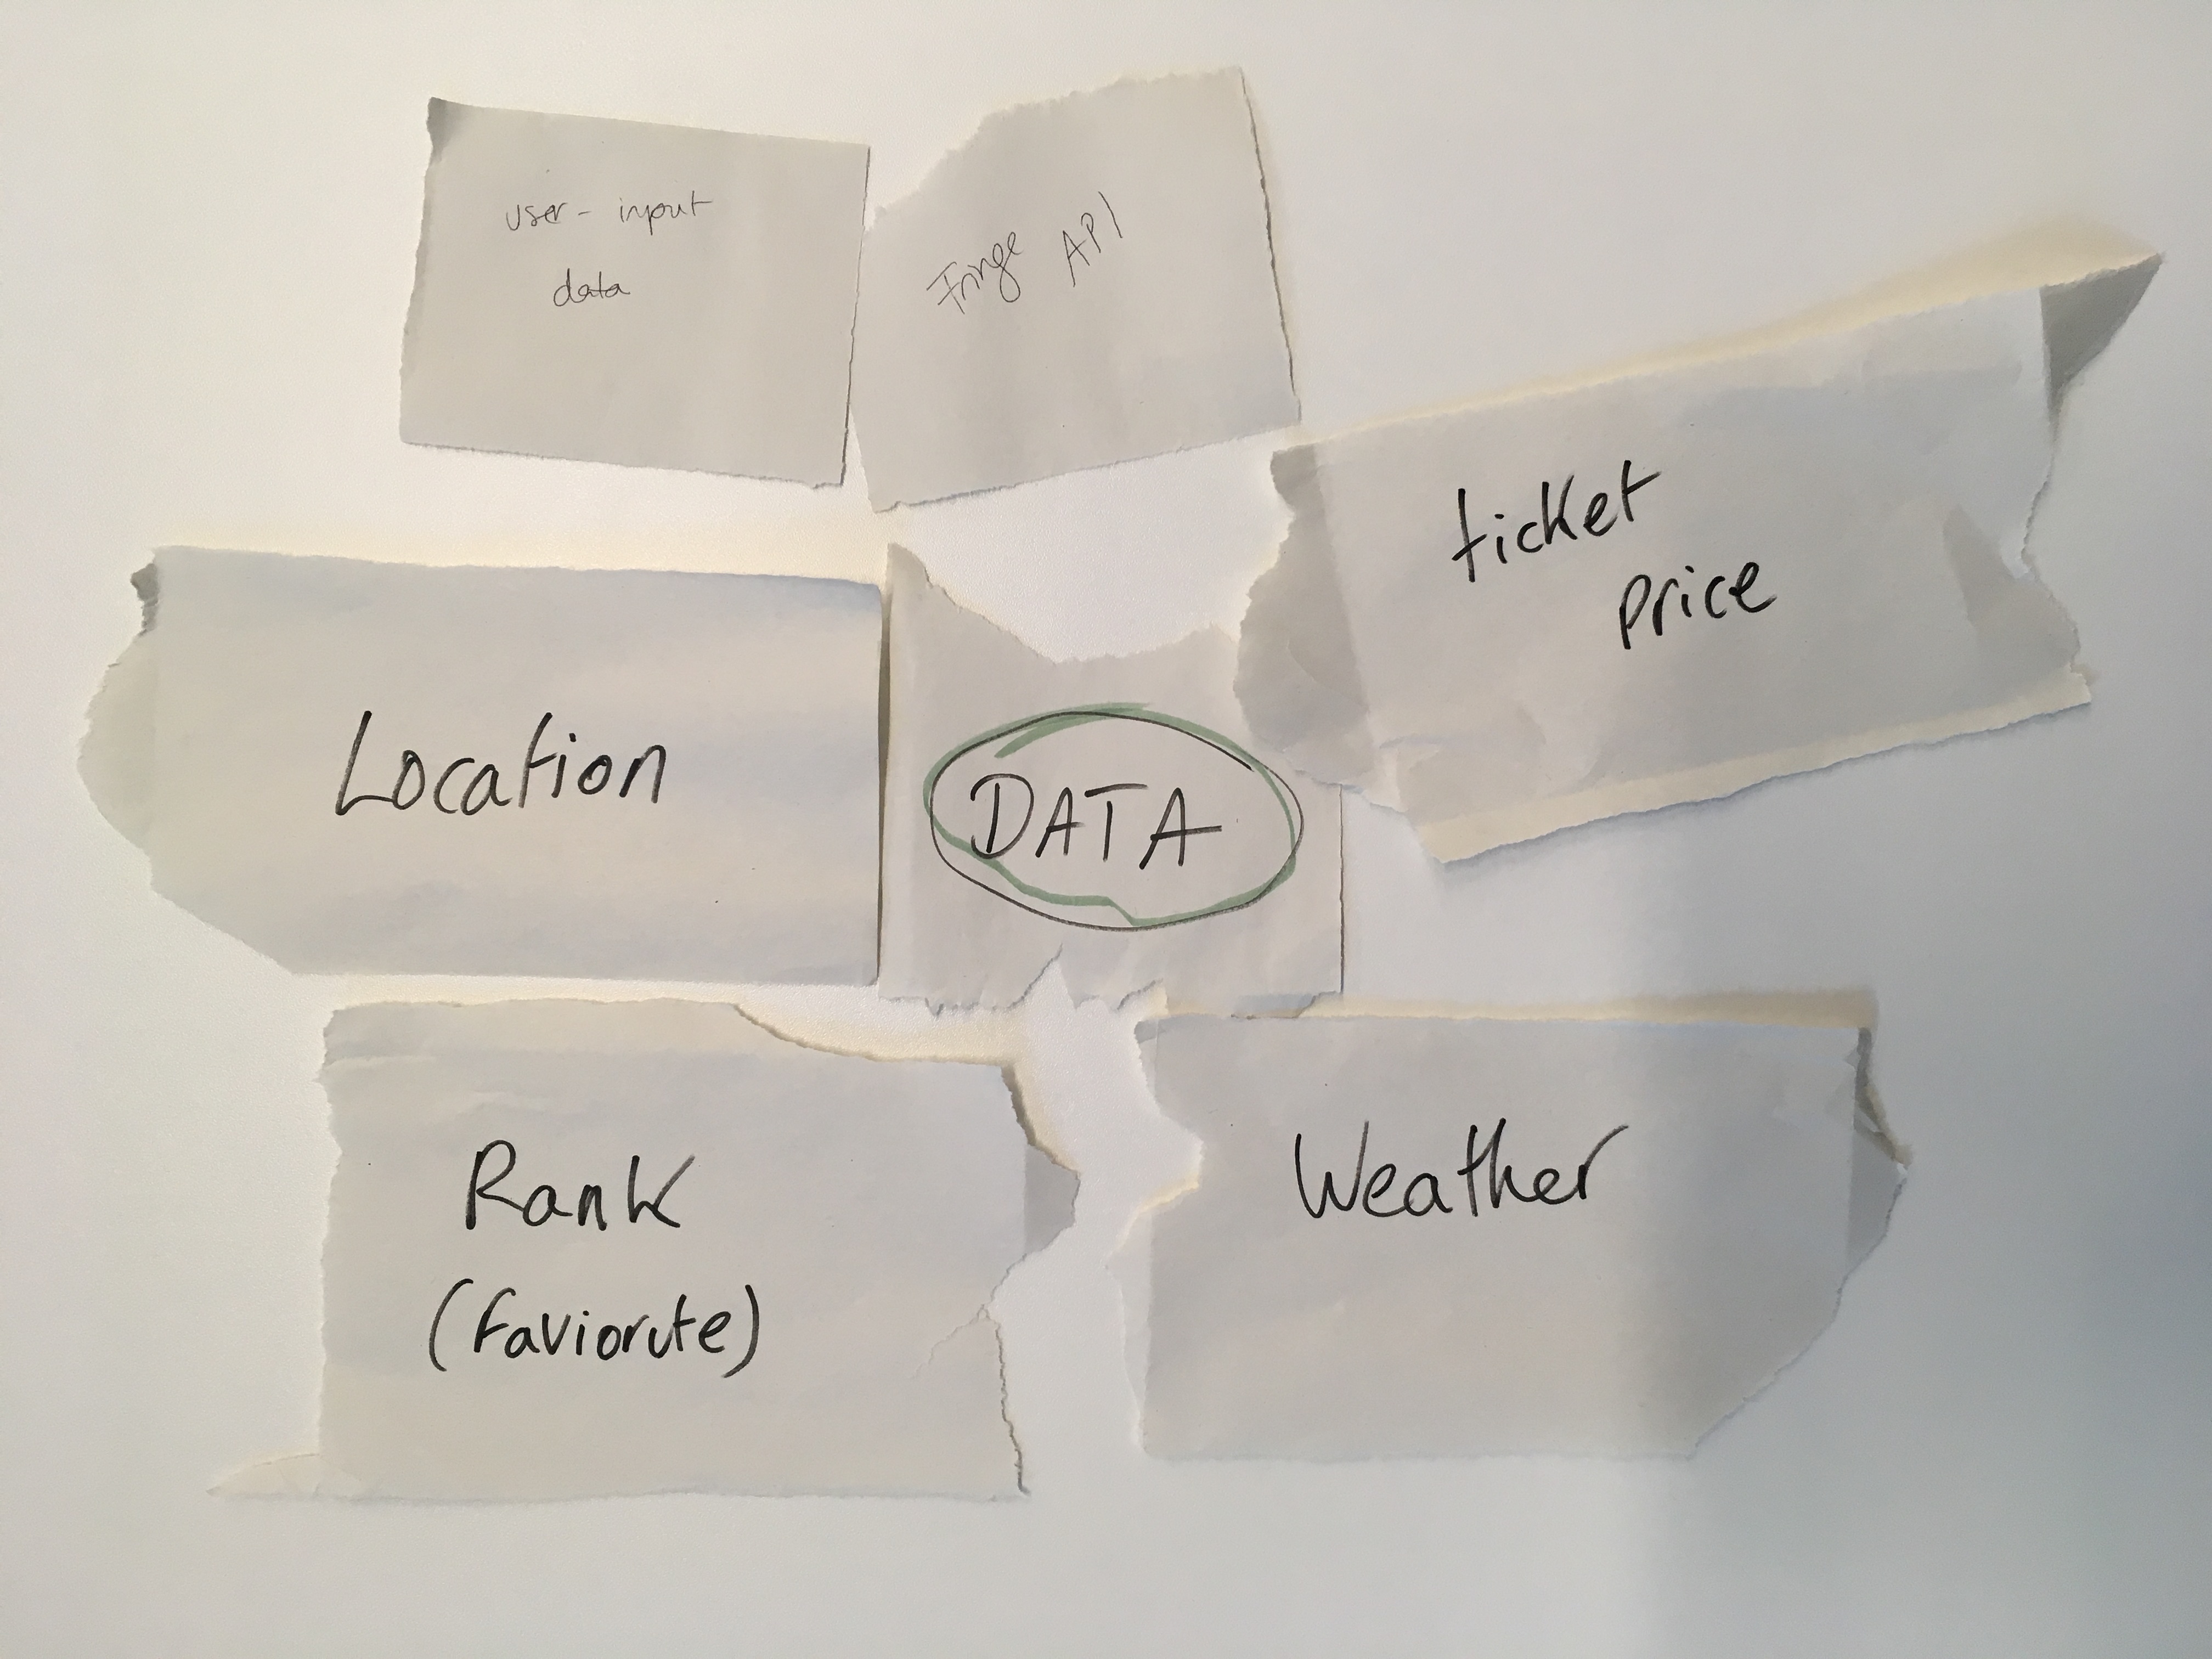 user - input
data
Fringe API
ticket
price
Location
DATA
Rank
(faviorute)
Weather